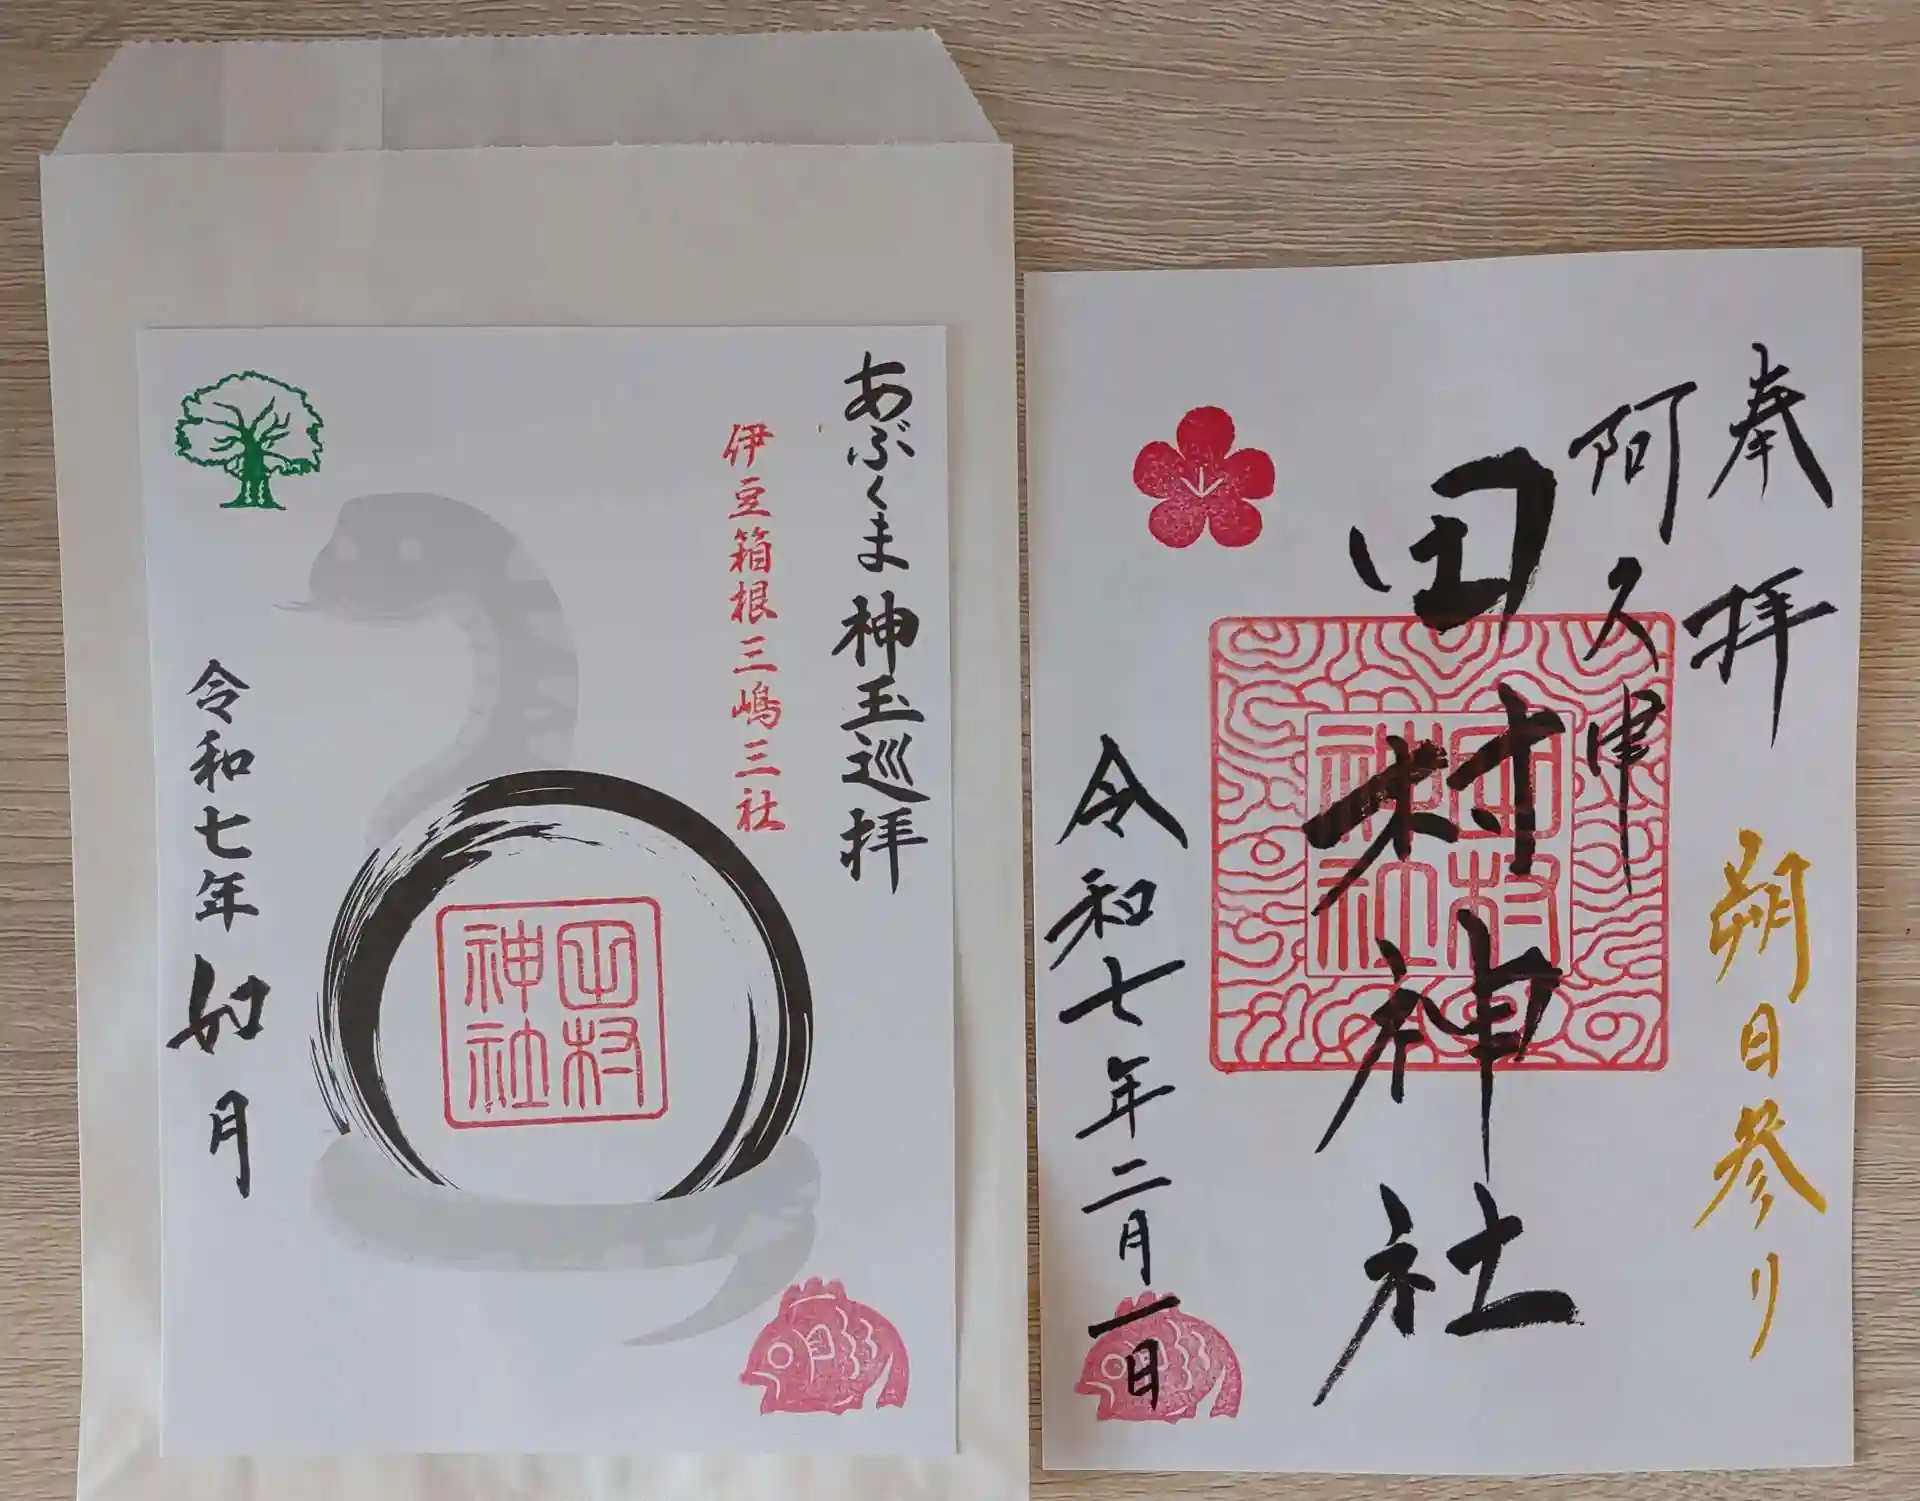 あぶくま神玉巡拝
伊豆箱根三嶋三社
田村
神社
令和七年如月
奉拝
朔日参り
阿久津
田村神社
田村
神社
令和七年二月一日